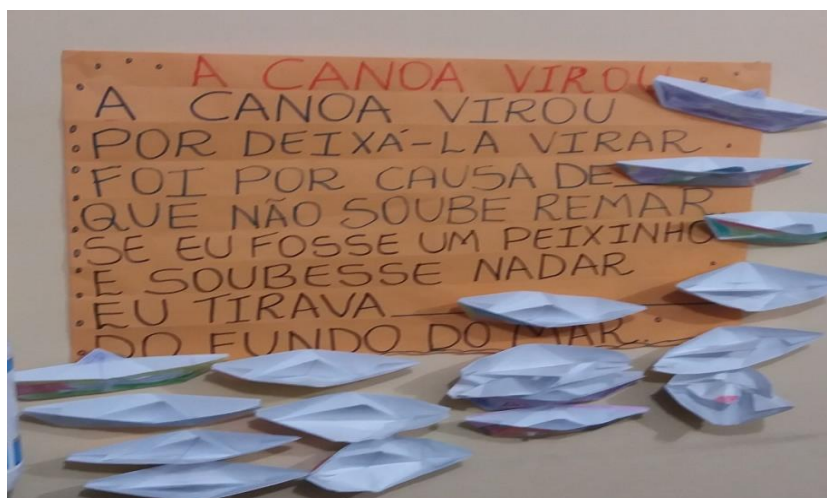 A CANOA VIROU
A CANOA VIROU
POR DEIXÁ-LA VIRAR
FOI POR CAUSA DE
QUE NÃO SOUBE REMAR
SE EU FOSSE UM PEIXINHO
E SOUBESSE NADAR
EU TIRAVA
DO FUNDO DO MAR